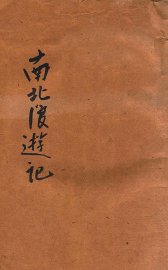 南北漫遊記